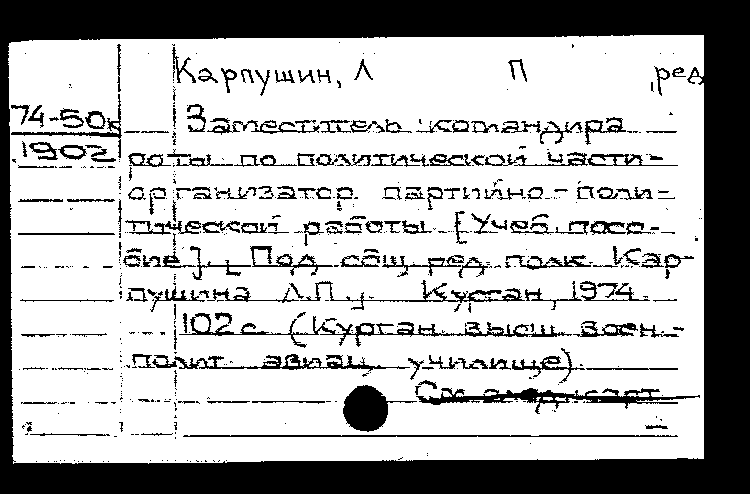 Карпушин, Л П , ред
74-50к
1902
Заместитель командира
роты по политической части-
организатор партийно-поли-
тической работы [Учеб. посо-
бие]. Под общ. ред. полк. Кар-
пушина Л.П. Курган, 1974.
102 с. (Курган. высш. воен.-
полит. авиац. училище).
См